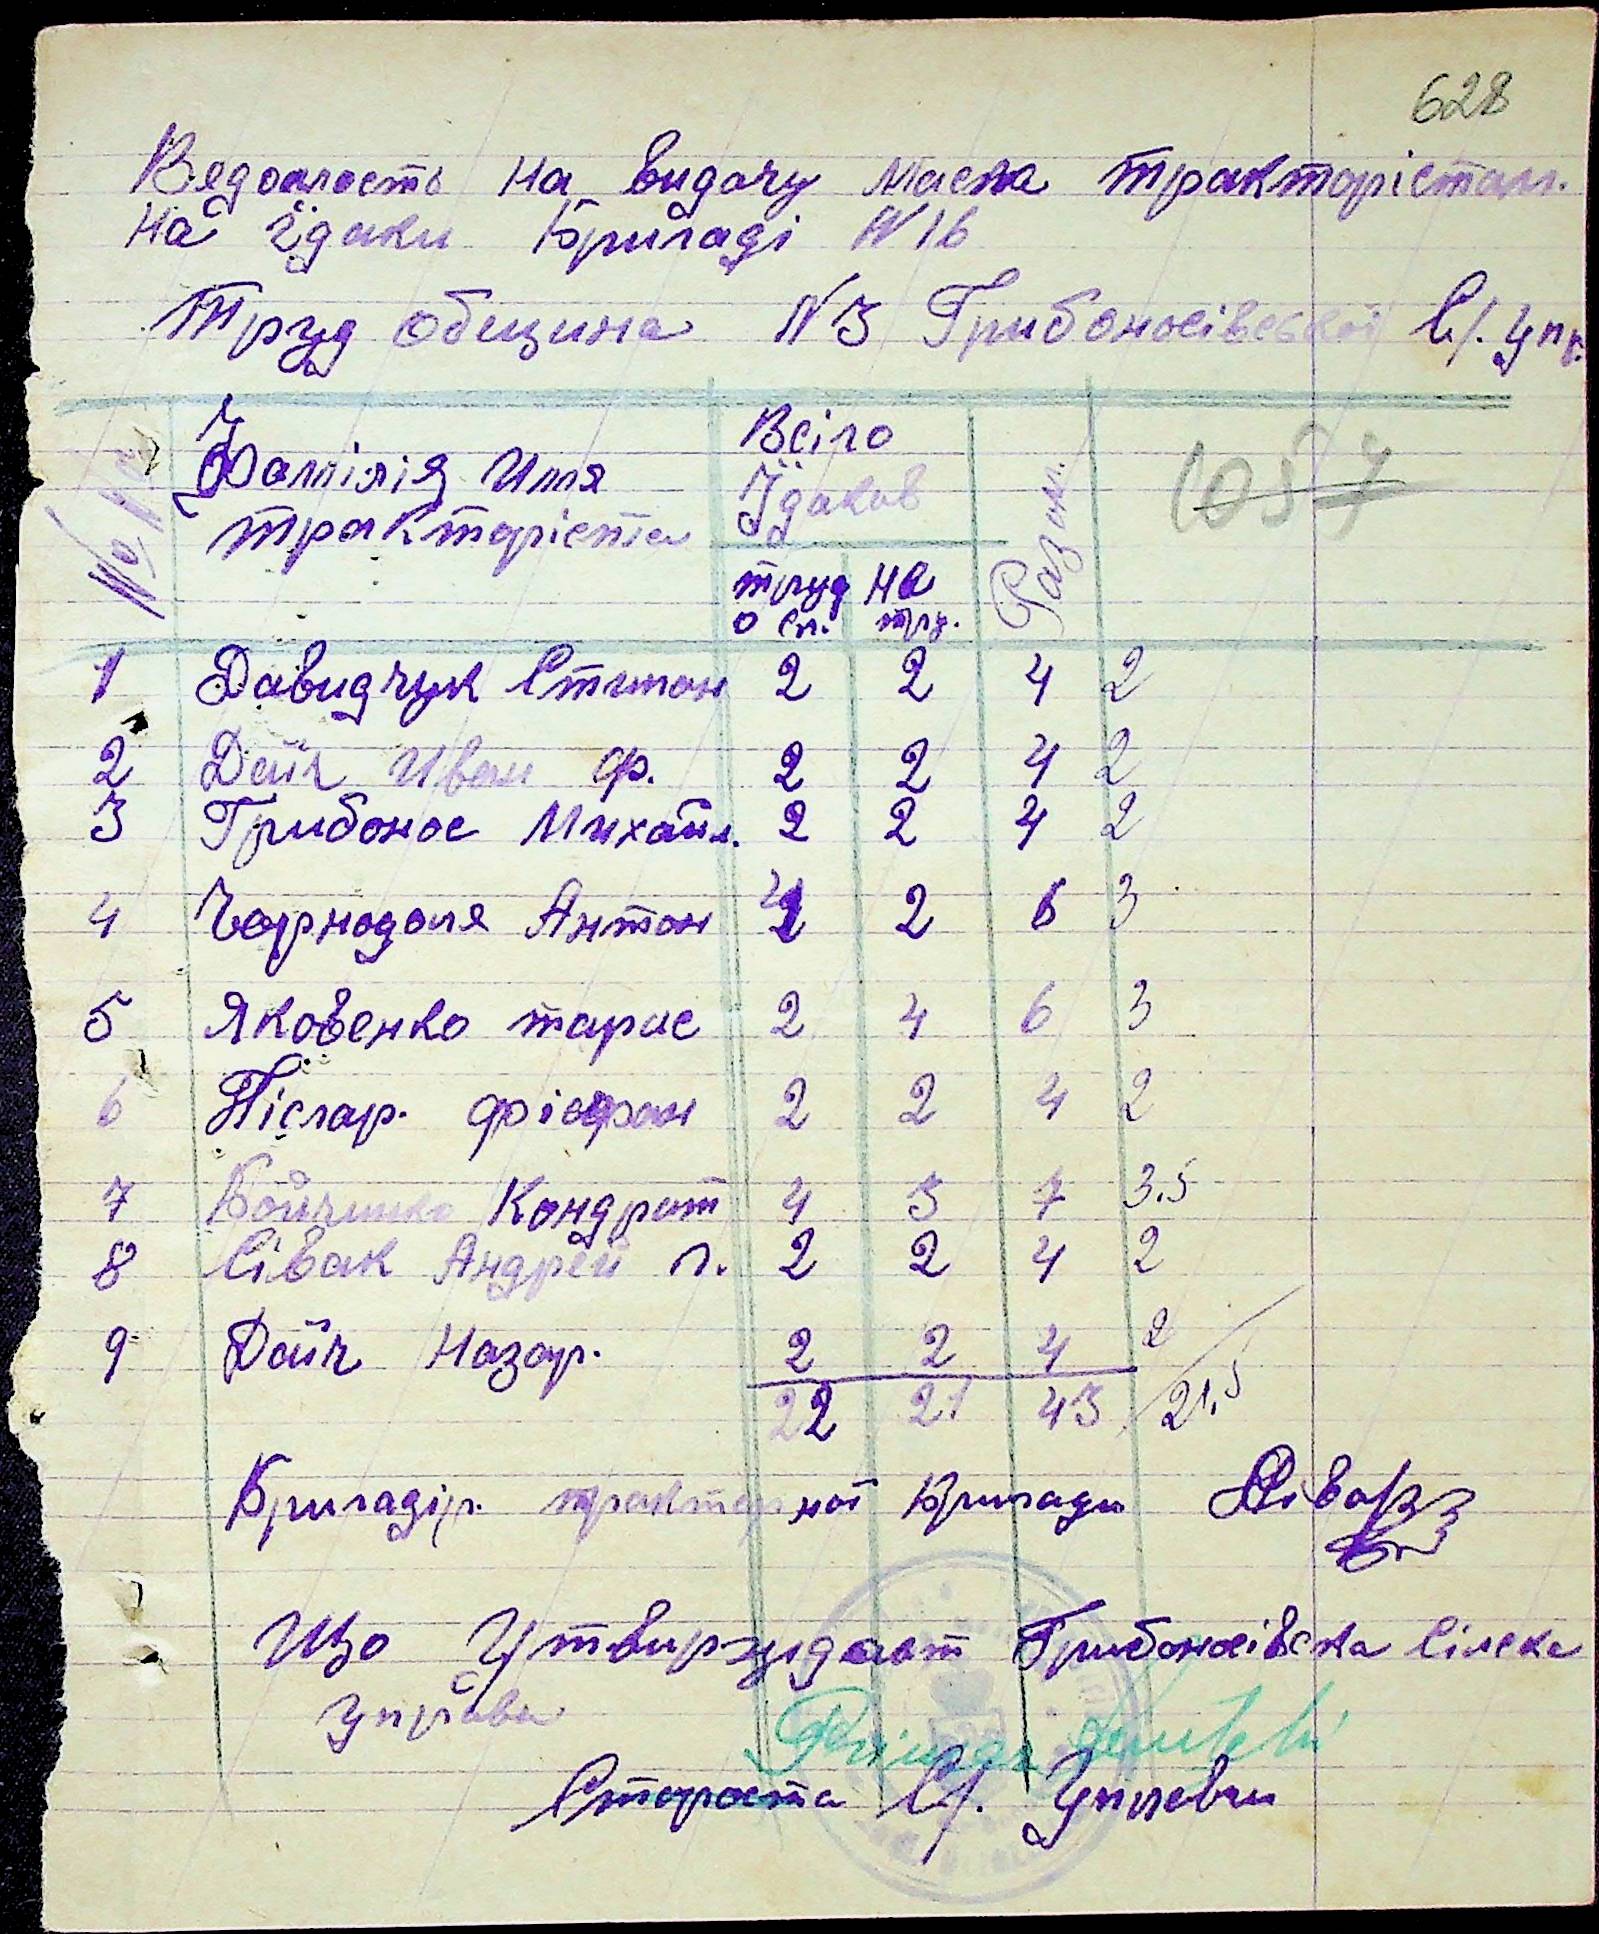 628
Вядомость на видачу масла трактористам.
на їдаки Бригаді N 16
Труд община N 3 Грибоносівської С/. Упр.
№ Фаміліія Имя Всіго Разом. 1087
тракторіста Їдаков
труд на
о сп. тру.
1 Давидчук Стипан 2 2 4 2
2 Дайч Иван Ф. 2 2 4 2
3 Грибонос Михайл. 2 2 4 2
4 Чорнодоля Антон 4 2 6 3
5 Яковенко тарас 2 4 6 3
6 Післар. 2 2 4 2
7 Бойчинко Кондрат 4 3 7 3.5
8 Сівак Андрей Г. 2 2 4 2
9 Дайч Назар. 2 2 4 2
22 21 43 21,5
Бригадір. тракторної Бригади Сівак
Що Утвирждает Грибоносівска Сілска
Управа
Староста С/. Управи